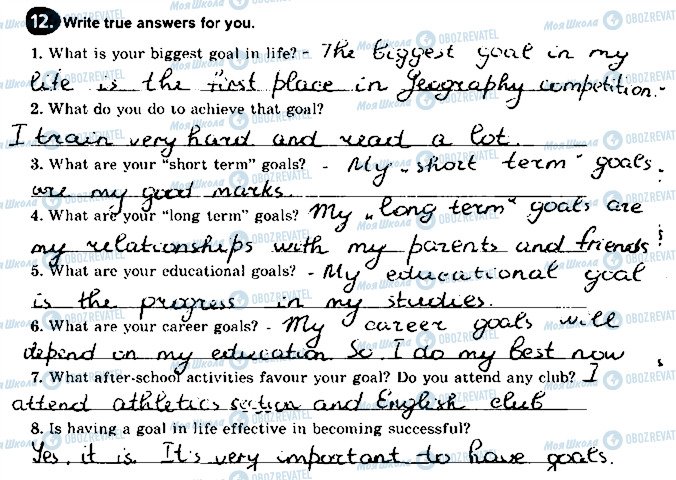 12. Write true answers for you.
1. What is your biggest goal in life? - The biggest goal in my
life is the first place in Geography competition.-
2. What do you do to achieve that goal?
I train very hard and read a lot.
3. What are your "short term" goals? - My „short term" goals
are my good marks.
4. What are your "long term" goals? My „long term" goals are
my relationships with my parents and friends
5. What are your educational goals? - My educational goal
is the progress in my studies.
6. What are your career goals? - My career goals will
depend on my education. So I do my best now
7. What after-school activities favour your goal? Do you attend any club? I
attend athletics section and English club
8. Is having a goal in life effective in becoming successful?
Yes, it is. It's very important to have goals.